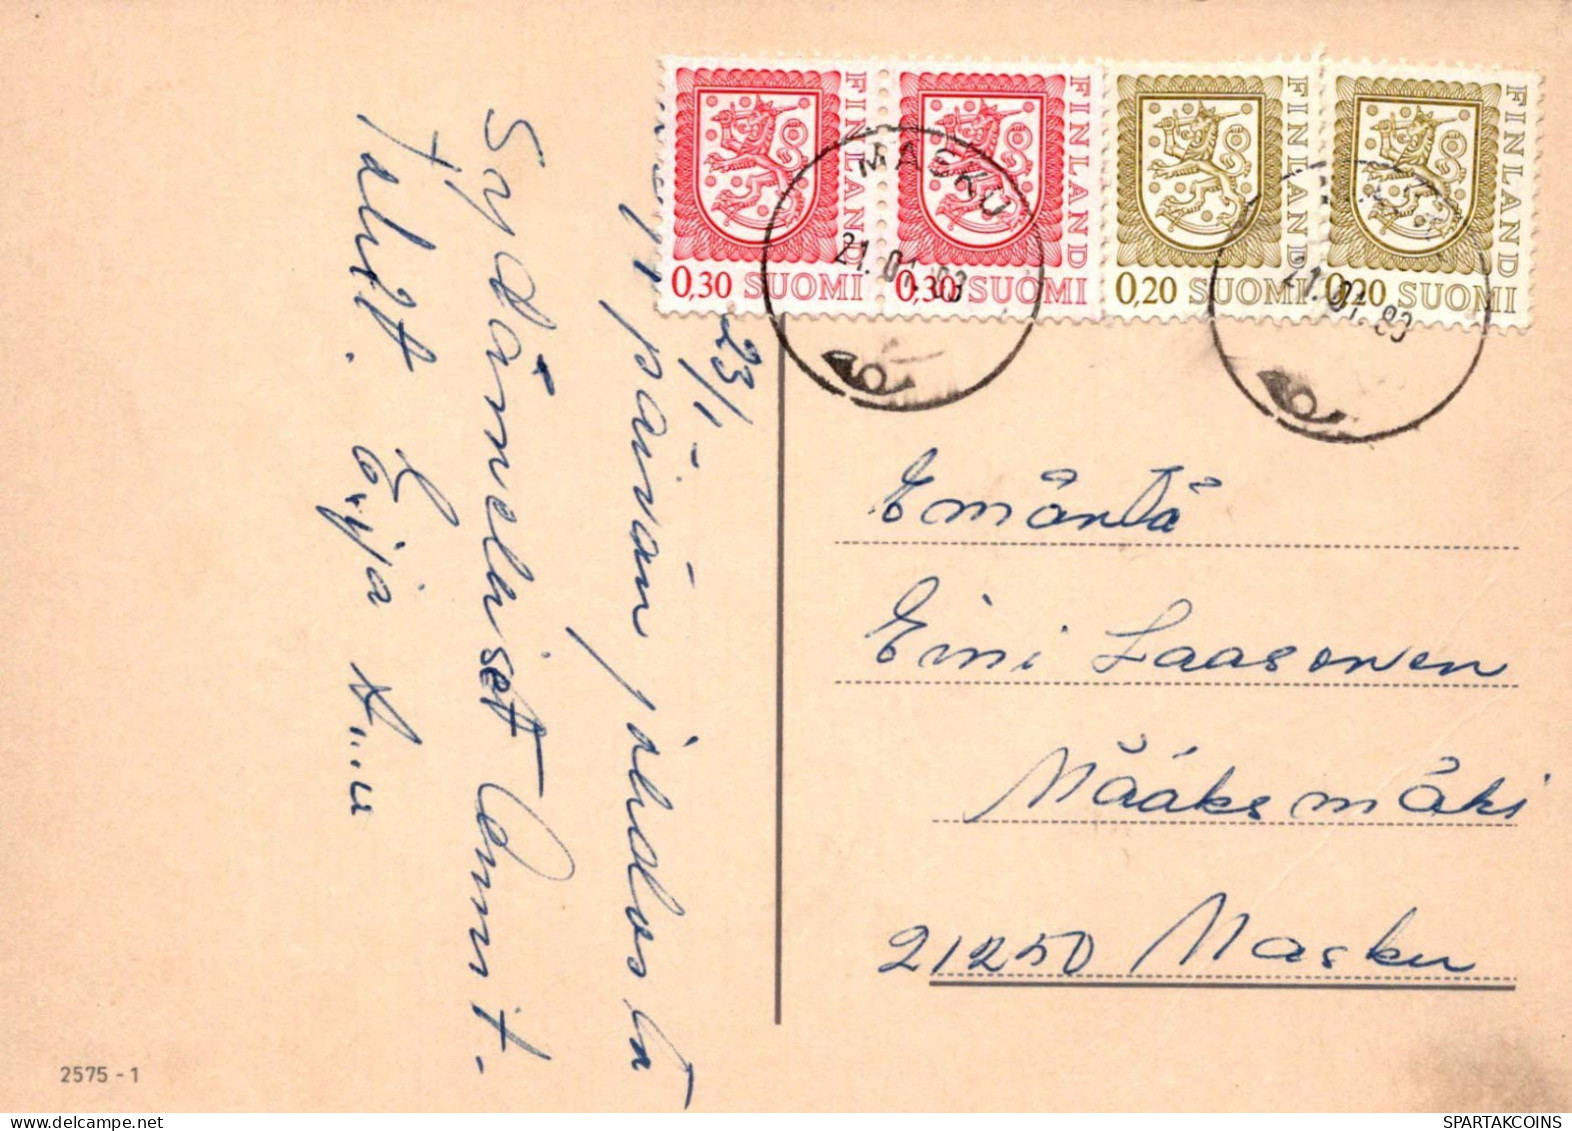 FINLAND
0,30 SUOMI
FINLAND
0,30 SUOMI
FINLAND
0,20 SUOMI
FINLAND
0,20 SUOMI
MASKU
21.01.83
21.01.83
23/1-
päivän johdosta
Sydämeliset Onnit.
Talitt. Eija
Emäntä
Eini Laasonen
Määksmäki
21250 Masku
2575-1
SPARTAKCOINS